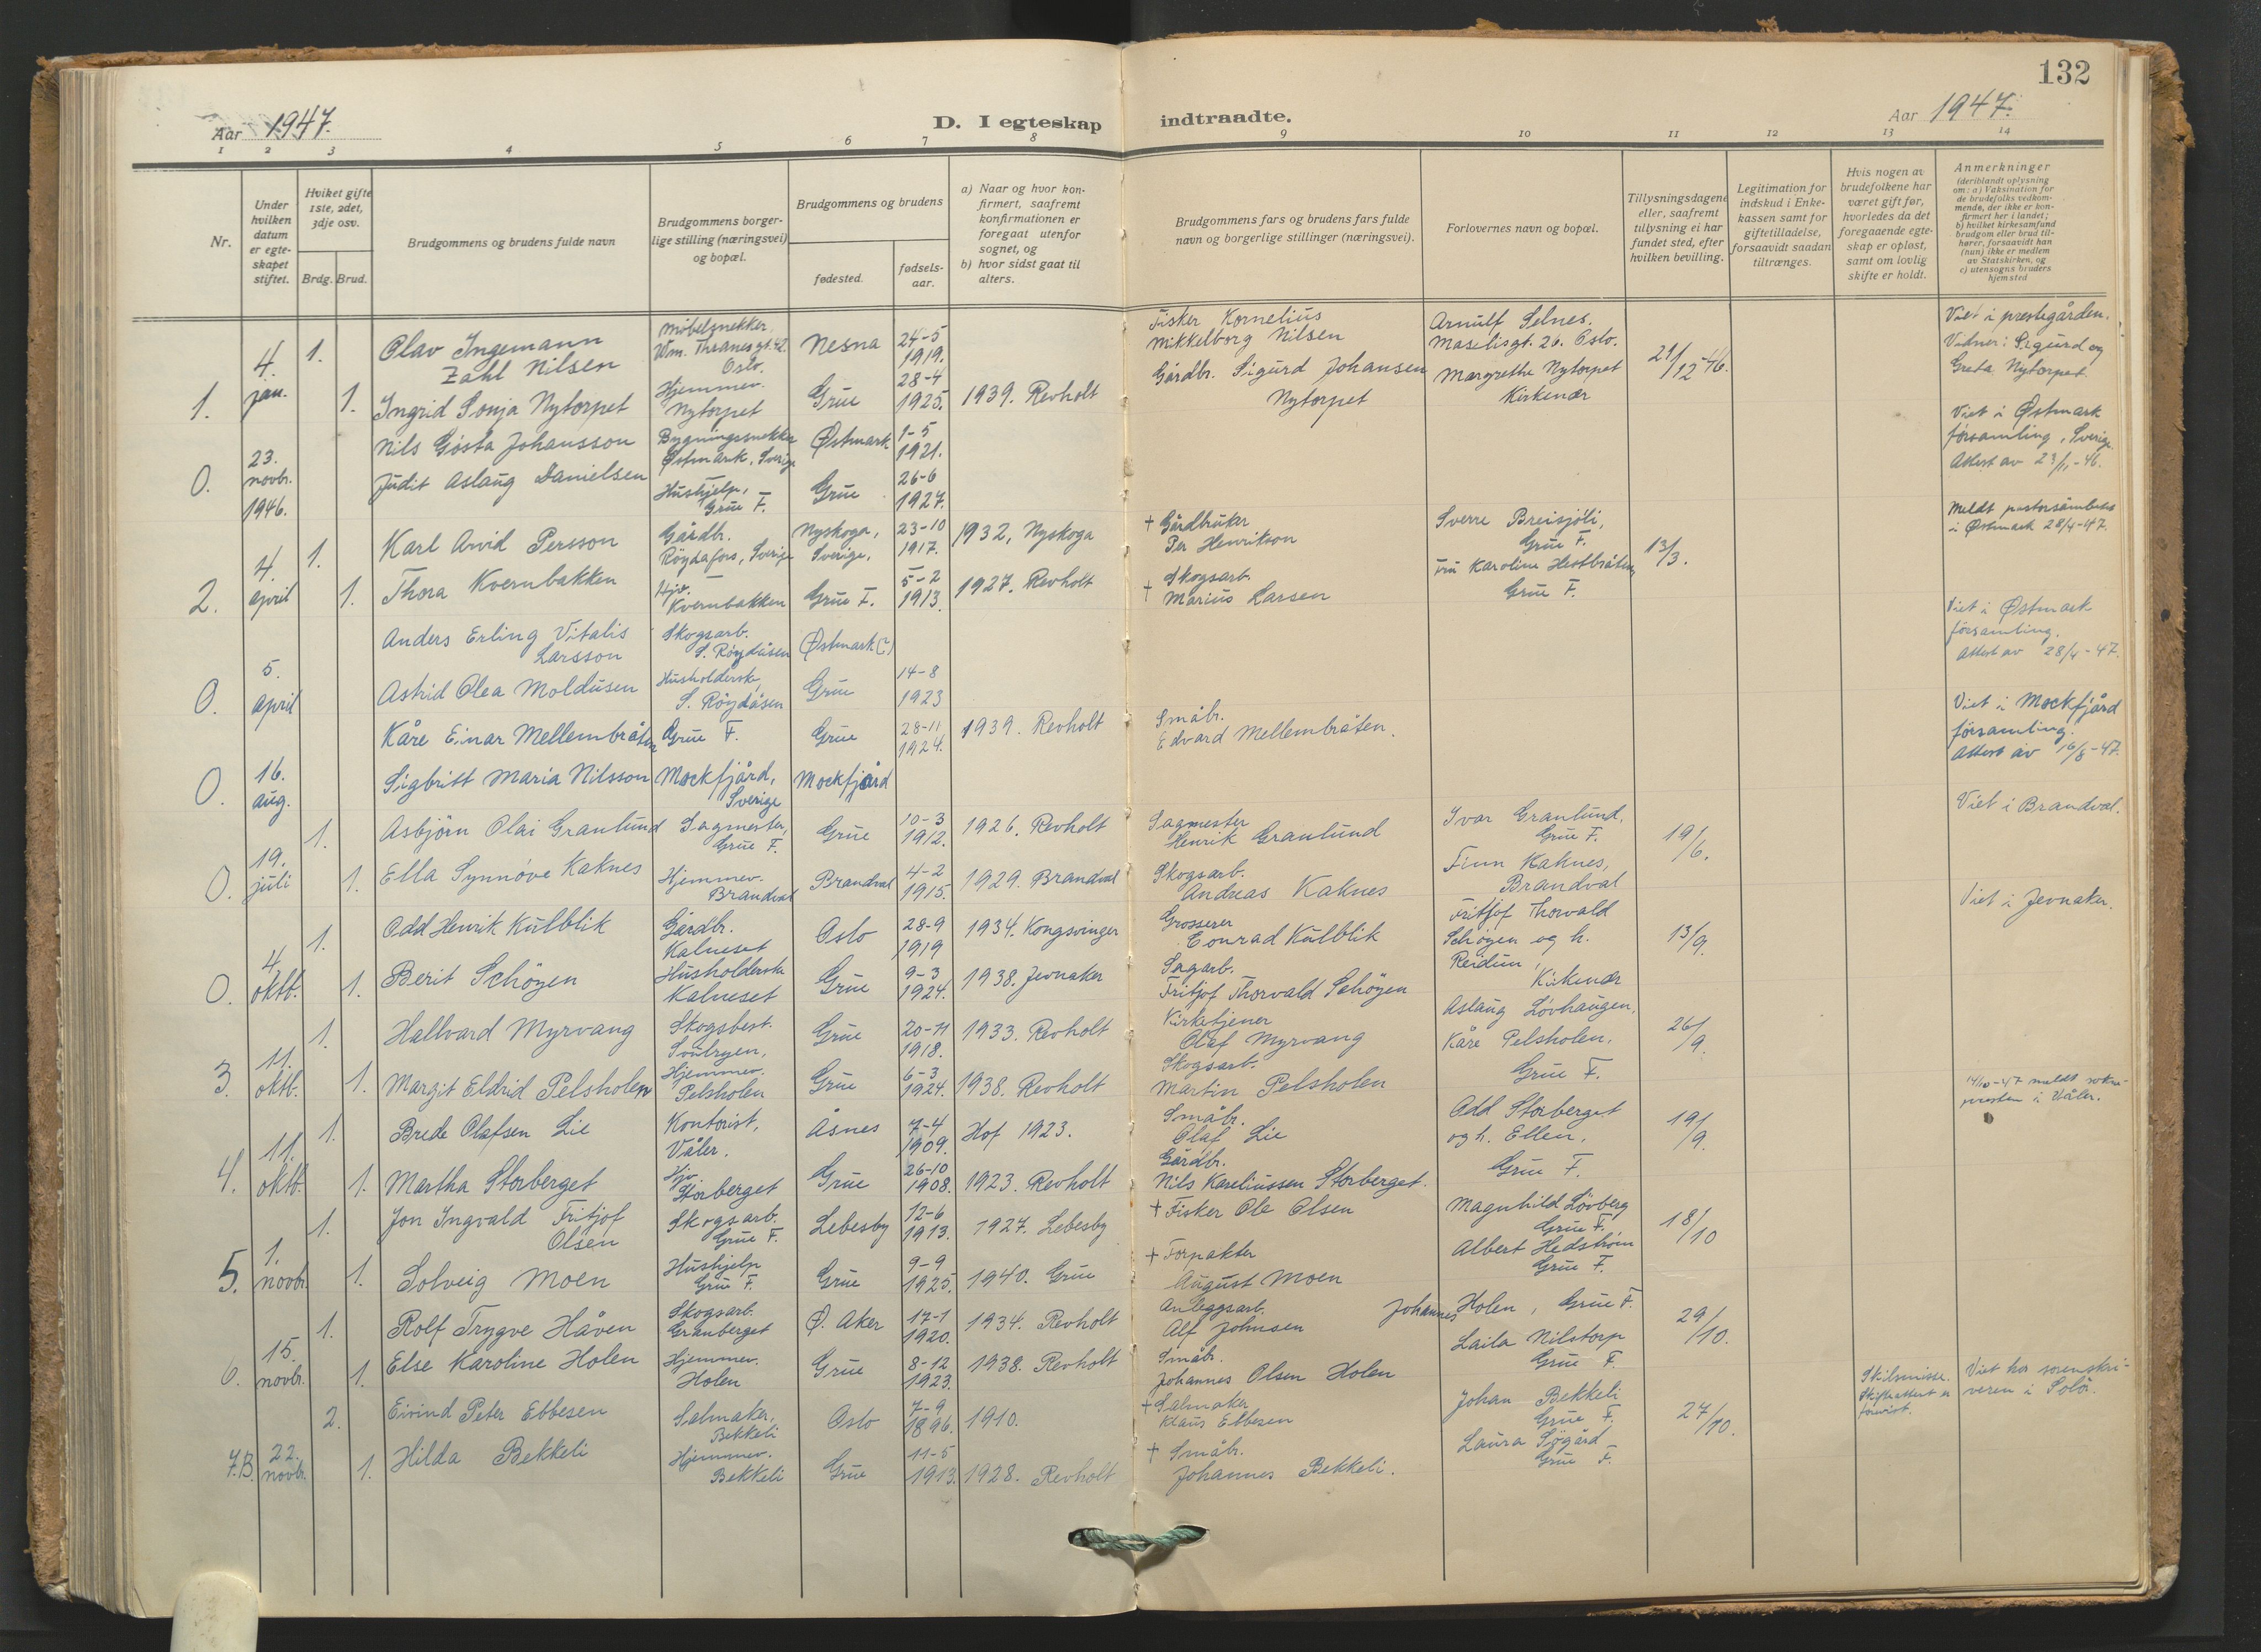 132
Aar 1947.
D. I egteskap indtraadte.
Aar 1947.
1 2 3 4 5 6 7 8 9 10 11 12 13 14
Nr.
Under
hvilken
datum
er egte-
skapet
stiftet.
Hvilket gifte
1ste, 2det,
3dje osv.
Brdg. Brud.
Brudgommens og brudens fulde navn
Brudgommens borger-
lige stilling (næringsvei)
og bopæl.
Brudgommens og brudens
fødested.
fødsels-
aar.
a) Naar og hvor kon-
firmert, saafremt
konfirmationen er
foregaat utenfor
sognet, og
b) hvor sidst gaat til
alters.
Brudgommens fars og brudens fars fulde
navn og borgerlige stillinger (næringsvei).
Forlovernes navn og bopæl.
Tillysningsdagene
eller, saafremt
tillysning ei har
fundet sted, efter
hvilken bevilling.
Legitimation for
indskud i Enke-
kassen samt for
giftetilladelse,
forsaavidt saadan
tiltrænges.
Hvis nogen av
brudefolkene har
været gift før,
hvorledes da det
foregaaende egte-
skap er opløst,
samt om lovlig
skifte er holdt.
Anmerkninger
(deriblandt oplysning
om: a) Vaksination for
de brudefolks vedkom-
mende, der ikke er kon-
firmert her i landet;
b) hvilket kirkesamfund
brudgom eller brud til-
hører, forsaavidt han
(hun) ikke er medlem
av Statskirken, og
c) utensogns bruders
hjemsted
1.
4.
jan.
1.
Olav Ingemann
Zahl Nilsen
Møbelsnekker
Wm. Thranesgt. 42
Oslo.
Nesna
24-5
1919.
Fisker Kornelius
Mikkelborg Nilsen
Arnulf Selnes.
Maselisgt. 26. Oslo.
21/12-46.
Viet i prestegården.
Vidner: Sigurd og
Greta Nytorpet.
1.
Ingrid Sonja Nytorpet
Hjemmev.
Nytorpet
Grue
28-4
1925.
1939. Revholt
Gårdbr. Sigurd Johansen
Nytorpet
Margrethe Nytorpet
Kirkenær
0.
23.
novbr.
1946.
Nils Gösta Johansson
Bygningssnekker
Østmark, Sverige
Østmark
1-5
1921.
Viet i Østmark
församling, Sverige
Attest av 23/11-46.
Judit Aslaug Danielsen
Hushjelp,
Grue F.
Grue
26-6
1927.
2.
4.
april
1.
Karl Arvid Persson
Gårdbr.
Röjdafors, Sverige
Nyskoga,
Sverige,
23-10
1917.
1932, Nyskoga
+ Gårdbruker
Per Henrikson
Sverre Breisjöli,
Grue F.
13/3.
Meldt pastorsämbetet
i Østmark 28/4-47.
1.
Thora Kvernbakken
Hjv.
Kvernbakken
Grue F.
5-2
1913.
1927. Revholt
+ Skogsarb.
Marius Larsen
Fru Karoline Hestbråten
Grue F.
0.
5.
april
Anders Erling Vitalis
Larsson
Skogsarb.
S. Röjdåsen
Østmark(?)
Viet i Østmark
församling.
Attest av 28/4-47.
Astrid Olea Moldusen
Husholderske,
S. Röjdåsen
Grue
14-8
1923
0.
16.
aug.
Kåre Einar Mellembråten
Grue F.
Grue
28-11
1924.
1939. Revholt
Småbr.
Edvard Mellembråten.
Viet i Mockfjärd
församling.
Attest av 16/8-47.
Sigbritt Maria Nilsson
Mockfjärd,
Sverige
Mockfjärd
0.
19.
juli
1.
Asbjörn Olai Granlund
Sagmester,
Grue F.
Grue
10-3
1912.
1926. Revholt
Sagmester
Henrik Granlund
Ivar Granlund,
Grue F.
19/6.
Viet i Brandval.
1.
Ella Synnöve Kaknes
Hjemmev.
Brandval
Brandval
4-2
1915.
1929. Brandval
Skogsarb.
Andreas Kaknes
Finn Kaknes,
Brandval
0.
4.
oktb.
1.
Odd Henrik Kulblik
Gårdbr.
Kalneset
Oslo
28-9
1919
1934. Kongsvinger
Grosserer
Conrad Kulblik
Fritjof Thorvald
Schöyen og h.
Reidun,
Kirkenær
13/9.
Viet i Jevnaker.
1.
Berit Schöyen
Husholderske
Kalneset
Grue
9-3
1924.
1938. Jevnaker
Sagarb.
Fritjof Thorvald Schöyen
3.
11.
oktb.
1.
Hallvard Myrvang
Skogsbest.
Svulryen,
Grue
20-11
1918.
1933. Revholt
Kirketjener
Olaf Myrvang
Aslaug Lövhaugen,
Kåre Pelsholen.
Grue F.
26/9.
1.
Margit Eldrid Pelsholen
Hjemmev.
Pelsholen
Grue
6-3
1924.
1938. Revholt
Skogsarb.
Martin Pelsholen
4.
11.
oktb.
1.
Brede Olafsen Lie
Kontorist,
Våler.
Åsnes
7-4
1909.
Hof 1923.
Småbr.
Olaf Lie
Odd Storberget
og h. Ellen,
Grue F.
19/9.
14/10-47 meldt sokne-
presten i Våler.
1.
Martha Storberget
Hjv.
Storberget
Grue
26-10
1908.
1923. Revholt
Gårdbr.
Nils Kareliussen Storberget.
5.
1.
novbr.
1.
Jon Ingvald Fritjof
Olsen
Skogsarb.
Grue F.
Lebesby
12-6
1913.
1927. Lebesby
+ Fisker Ole Olsen
Magnhild Lövberg
Grue F.
18/10
1.
Solveig Moen
Hushjelp
Grue F.
Grue
9-9
1925.
1940. Grue
+ Forpakter
August Moen
Albert Hedström
Grue F.
6.
15.
novbr.
1.
Rolf Trygve Håven
Skogsarb.
Granberget
Ø. Aker
17-1
1920.
1934. Revholt
Anleggsarb.
Alf Johnsen
Johannes Holen, Grue F.
29/10.
1.
Else Karoline Holen
Hjemmev.
Holen
Grue
8-12
1923.
1938. Revholt
Småbr.
Johannes Olsen Holen
Laila Nilstorp
Grue F.
7.B.
22.
novbr.
2.
Eivind Peter Ebbesen
Salmaker,
Bekkeli
Oslo
7-9
1896.
1910.
+ Salmaker
Klaus Ebbesen
Johan Bekkeli
Grue F.
27/10.
Skilsmisse.
Skifteattest er
forevist.
Viet hos sorenskri-
veren i Solör.
1.
Hilda Bekkeli
Hjemmev.
Bekkeli
Grue
11-5
1913.
1928. Revholt
+ Småbr.
Johannes Bekkeli.
Laura Sjögård
Grue F.